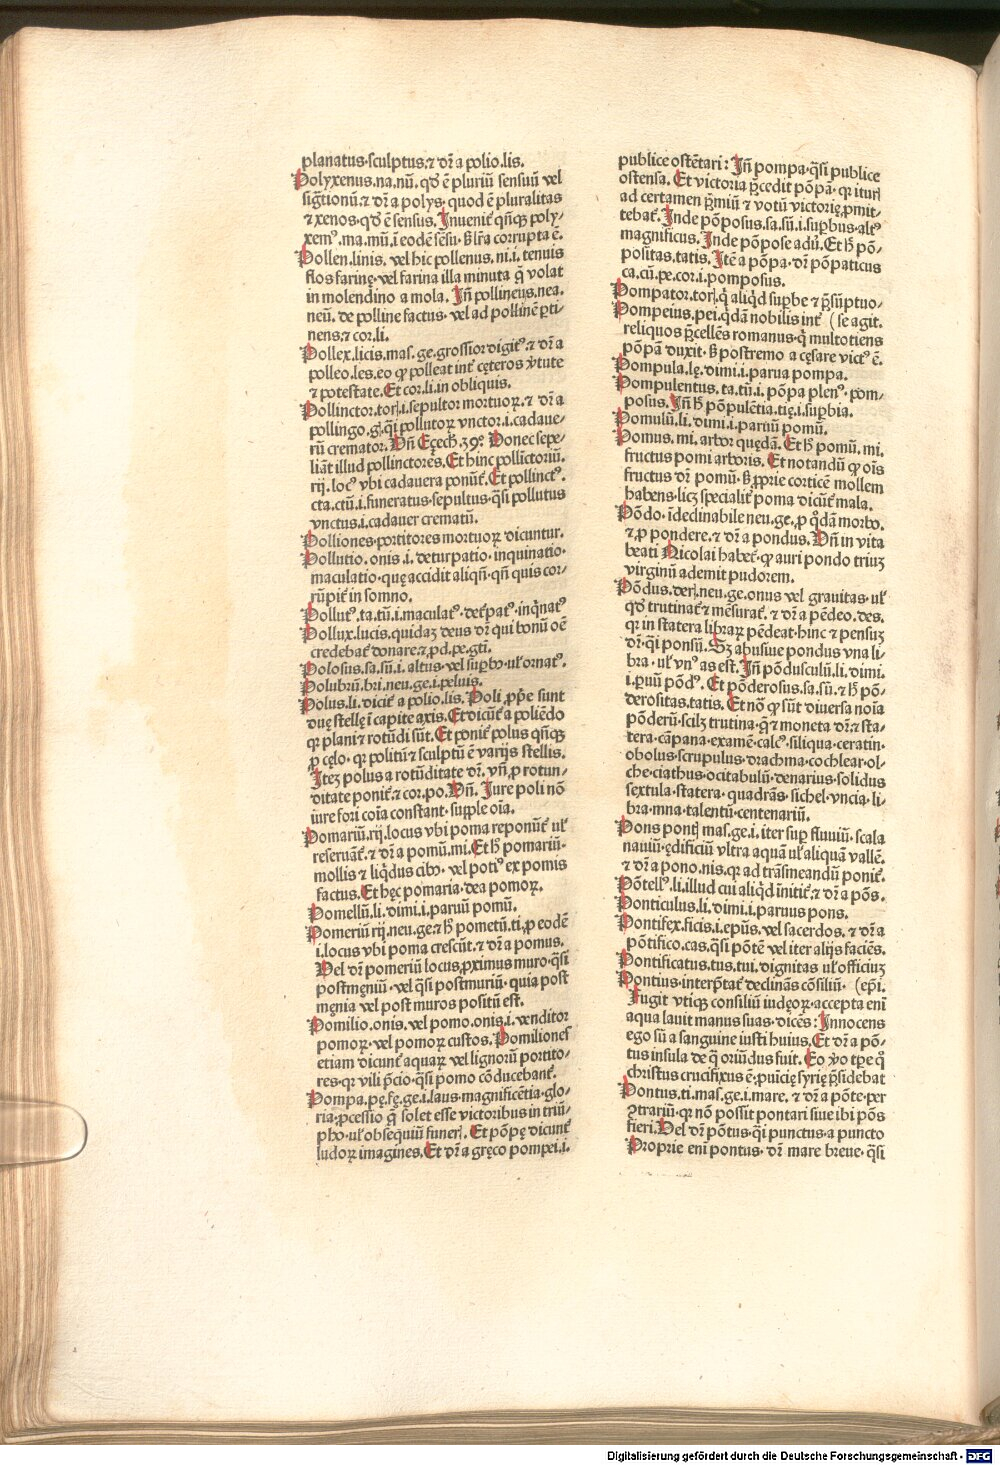 planatus·sculptus.⁊ dr̄ a polio.lis.
Polyxenus.na.nū. qd̄ ē pluriū sensuū vel
sig̅tionū.⁊ dr̄ a polys. quod ē pluralitas
⁊ xenos·qd̄ ē sensus. Inuenit᷑ qn̄qꝫ poly-
xemꝰ.ma.mū.ī eodē sēsu·ß lr̄a corrupta ē.
Pollen.linis. vel hic pollenus.ni.i. tenuis
flos farinę·vel farina illa minuta q̄ volat
in molendino a mola. Jn̄ pollineus.nea.
neū. de polline factus· vel ad pollinē ꝑti-
nens.⁊ cor.li.
Pollex.licis.mas.ge.grossior digitꝰ.⁊ dr̄ a
polleo.les.eo ꝙ polleat int᷑ cęteros v̓tute
⁊ potestate. Et cor.li.in obliquis.
Pollinctor.torꝭ.i.sepultor mortuoꝝ. ⁊ dr̄ a
pollingo.gꝭ.q̄si pollutoꝝ vnctor.i.cadaue-
rū cremator. Vn̄ Eʒech.39ꝰ. Donec sepe-
liāt illud pollinctores. Et hinc pollīctoriū.
rij. locꝰ vbi cadauera ponūt᷑. Et pollinctꝰ.
cta.ctū.i.funeratus·sepultus·q̄si pollutus
vnctus.i.cadauer crematū.
Polliones·portitores mortuoꝝ dicuntur.
Pollutio.onis.i.deturpatio·inquinatio·
maculatio·quę accidit aliqn̄·qn̄ quis cor-
rūpit᷑ in somno.
Pollutꝰ.ta.tū.i.maculatꝰ·det᷑patꝰ·inq̇natꝰ
Pollux.lucis.quidaʒ deus dr̄ qui bonū oē
credebat᷑ donare.⁊ ꝓd.pe.gt̄i.
Polosus.sa.sū.i. altus·vel suꝑbꝰ·ul᷑ ornatꝰ.
Polubrū.bri.neu.ge.i.peluis.
Polus.li.dicit᷑ a polio.lis. Poli ꝓpͤe sunt
duę stellę ī capite axis. Et dicūt᷑ a poliēdo
qꝛ plani ⁊ rotūdi sūt. Et ponit᷑ polus qn̄qꝫ
ꝓ cęlo· qꝛ politū ⁊ sculptū ē varijs stellis.
Iteʒ polus a rotūditate dr̄. vn̄ ꝓ rotun-
ditate ponit᷑ ⁊ cor.po. Vn̄. Iure poli nō
iure fori coīa constant· supple oīa.
Pomariū.rij.locus vbi poma reponūt᷑ ul᷑
reseruāt᷑.⁊ dr̄ a pomū.mi. Et h̄ pomariū·
mollis ⁊ liq̇dus cibꝰ· vel potiꝰ ex pomis
factus. Et hęc pomaria·dea pomoꝝ.
Pomellū.li.dimi.i.paruū pomū.
Pomeriū rij.neu.ge.⁊ h̄ pometū.ti.ꝓ eodē
.i.locus vbi poma crescūt.⁊ dr̄ a pomus.
Vel dr̄ pomeriū locus ꝓximus muro·q̄si
postmęniū· vel q̄si postmuriū· quia post
męnia vel post muros positū est.
Pomilio.onis. vel pomo.onis.i. venditor
pomoꝝ· vel pomoꝝ custos. Pomiliones
etiam dicunt᷑ aquaꝝ vel lignorū portito-
res·qꝛ vili p̄cio·q̄si pomo cōducebant᷑.
Pompa.pę.fę.ge.i.laus·magnificētia·glo-
ria·ꝓcessio q̄ solet esse victoribus in triū-
pho·ul᷑ obsequiū funerꝭ. Et pōpę dicunt᷑
ludoꝝ imagines. Et dr̄ a gręco pompei.i.
publice ostētari: Jn̄ pompa·q̄si publice
ostensa. Et victoria p̄cedit pōpā· qꝛ ituri
ad certamen p̄miū ⁊ votū victorię ꝓmit-
tebāt᷑. Inde pōposus.sa.sū.i.suꝑbus·altꝰ
magnificus. Inde pōpose adū. Et h̄ pō-
positas.tatis. Itē a pōpa· dr̄ pōpaticus
ca.cū.pe.cor.i.pomposus.
Pompator.torꝭ.q̇ aliq̇d suꝑbe ⁊ p̄sūptuo-
Pompeius.pei.q̇dā nobilis int᷑ (se agit.
reliquos p̄cellēs romanus·q̇ multotiens
pōpā duxit·ß postremo a cęsare victꝰ ē.
Pompula.lę.dimi.i.parua pompa.
Pompulentus.ta.tū.i. pōpa plenꝰ· pom-
posus. Jn̄ h̄ pōpulētia.tię.i.suꝑbia.
Pomulū.li.dimi.i.paruū pomū.
Pomus.mi.arbor quędā. Et h̄ pomū.mi.
fructus pomi arboris. Et notandū ꝙ oīs
fructus dr̄ pomū·ß ꝓprie corticē mollem
habens·licʒ specialit᷑ poma dicūt᷑ mala.
Pōdo·īdeclinabile neu.ge.ꝓ q̇dā morbo.
⁊ ꝓ pondere.⁊ dr̄ a pondus. Vn̄ in vita
beati Nicolai habet᷑·ꝙ auri pondo triuʒ
virginū ademit pudorem.
Pōdus.derꝭ.neu.ge.onus vel grauitas·ul᷑
qd̄ trutinat᷑ ⁊ mēsurat᷑. ⁊ dr̄ a pēdeo.des.
qꝛ in statera libraꝝ pēdeat·hinc ⁊ pensuʒ
dr̄·q̄si ponsū. Sʒ abusiue pondus vna li-
bra· ul᷑ vnꝰ as est. Jn̄ pōdusculū.li.dimi.
i.ꝑuū pōdꝰ. Et pōderosus.sa.sū. ⁊ h̄ pō-
derositas.tatis. Et nō ꝙ sūt diuersa noīa
pōderū·scilʒ trutina·q̄ ⁊ moneta dr̄·⁊ sta-
tera·cāpana·examē·calcꝰ·siliqua·ceratin·
obolus·scrupulus·drachma·cochlear·ol-
che·ciathus·ocitabulū·denarius·solidus
sextula·statera· quadrās·sichel·vncia·li-
bra·mna·talentū·centenariū.
Pons pontꝭ mas.ge.i.iter suꝑ fluuiū·scala
nauiū·ędificiū vltra aquā ul᷑ aliquā vallē.
⁊ dr̄ a pono.nis.qꝛ ad trāsmeandū ponit᷑.
Pōtellꝰ.li.illud cui aliq̇d īnitit᷑.⁊ dr̄ a pōs.
Ponticulus.li.dimi.i.paruus pons.
Pontifex.ficis.i.epūs. vel sacerdos. ⁊ dr̄ a
pōtifico.cas.q̄si pōtē vel iter alijs faciēs.
Pontificatus.tus.tui.dignitas ul᷑ officiuʒ
Pontius·interp̄tat᷑ declināns cōsiliū· (epī.
Fugit vtiqꝫ consiliū iudęoꝝ·accepta enī
aqua lauit manus suas·dicēs: Innocens
ego sū a sanguine iusti huius. Et dr̄ a pō-
tus insula de q̄ oriūdus fuit. Eo v̓o tꝑe q̊
christus crucifixus ē·ꝓuicię syrię p̄sidebat
Pontus.ti.mas.ge.i.mare. ⁊ dr̄ a pōte·per
ꝯtrariū·qꝛ nō possit pontari siue ibi pōs
fieri. Vel dr̄ pōtus·q̄si punctus·a puncto
Proprie enī pontus· dr̄ mare breue·q̄si
Digitalisierung gefördert durch die Deutsche Forschungsgemeinschaft · DFG